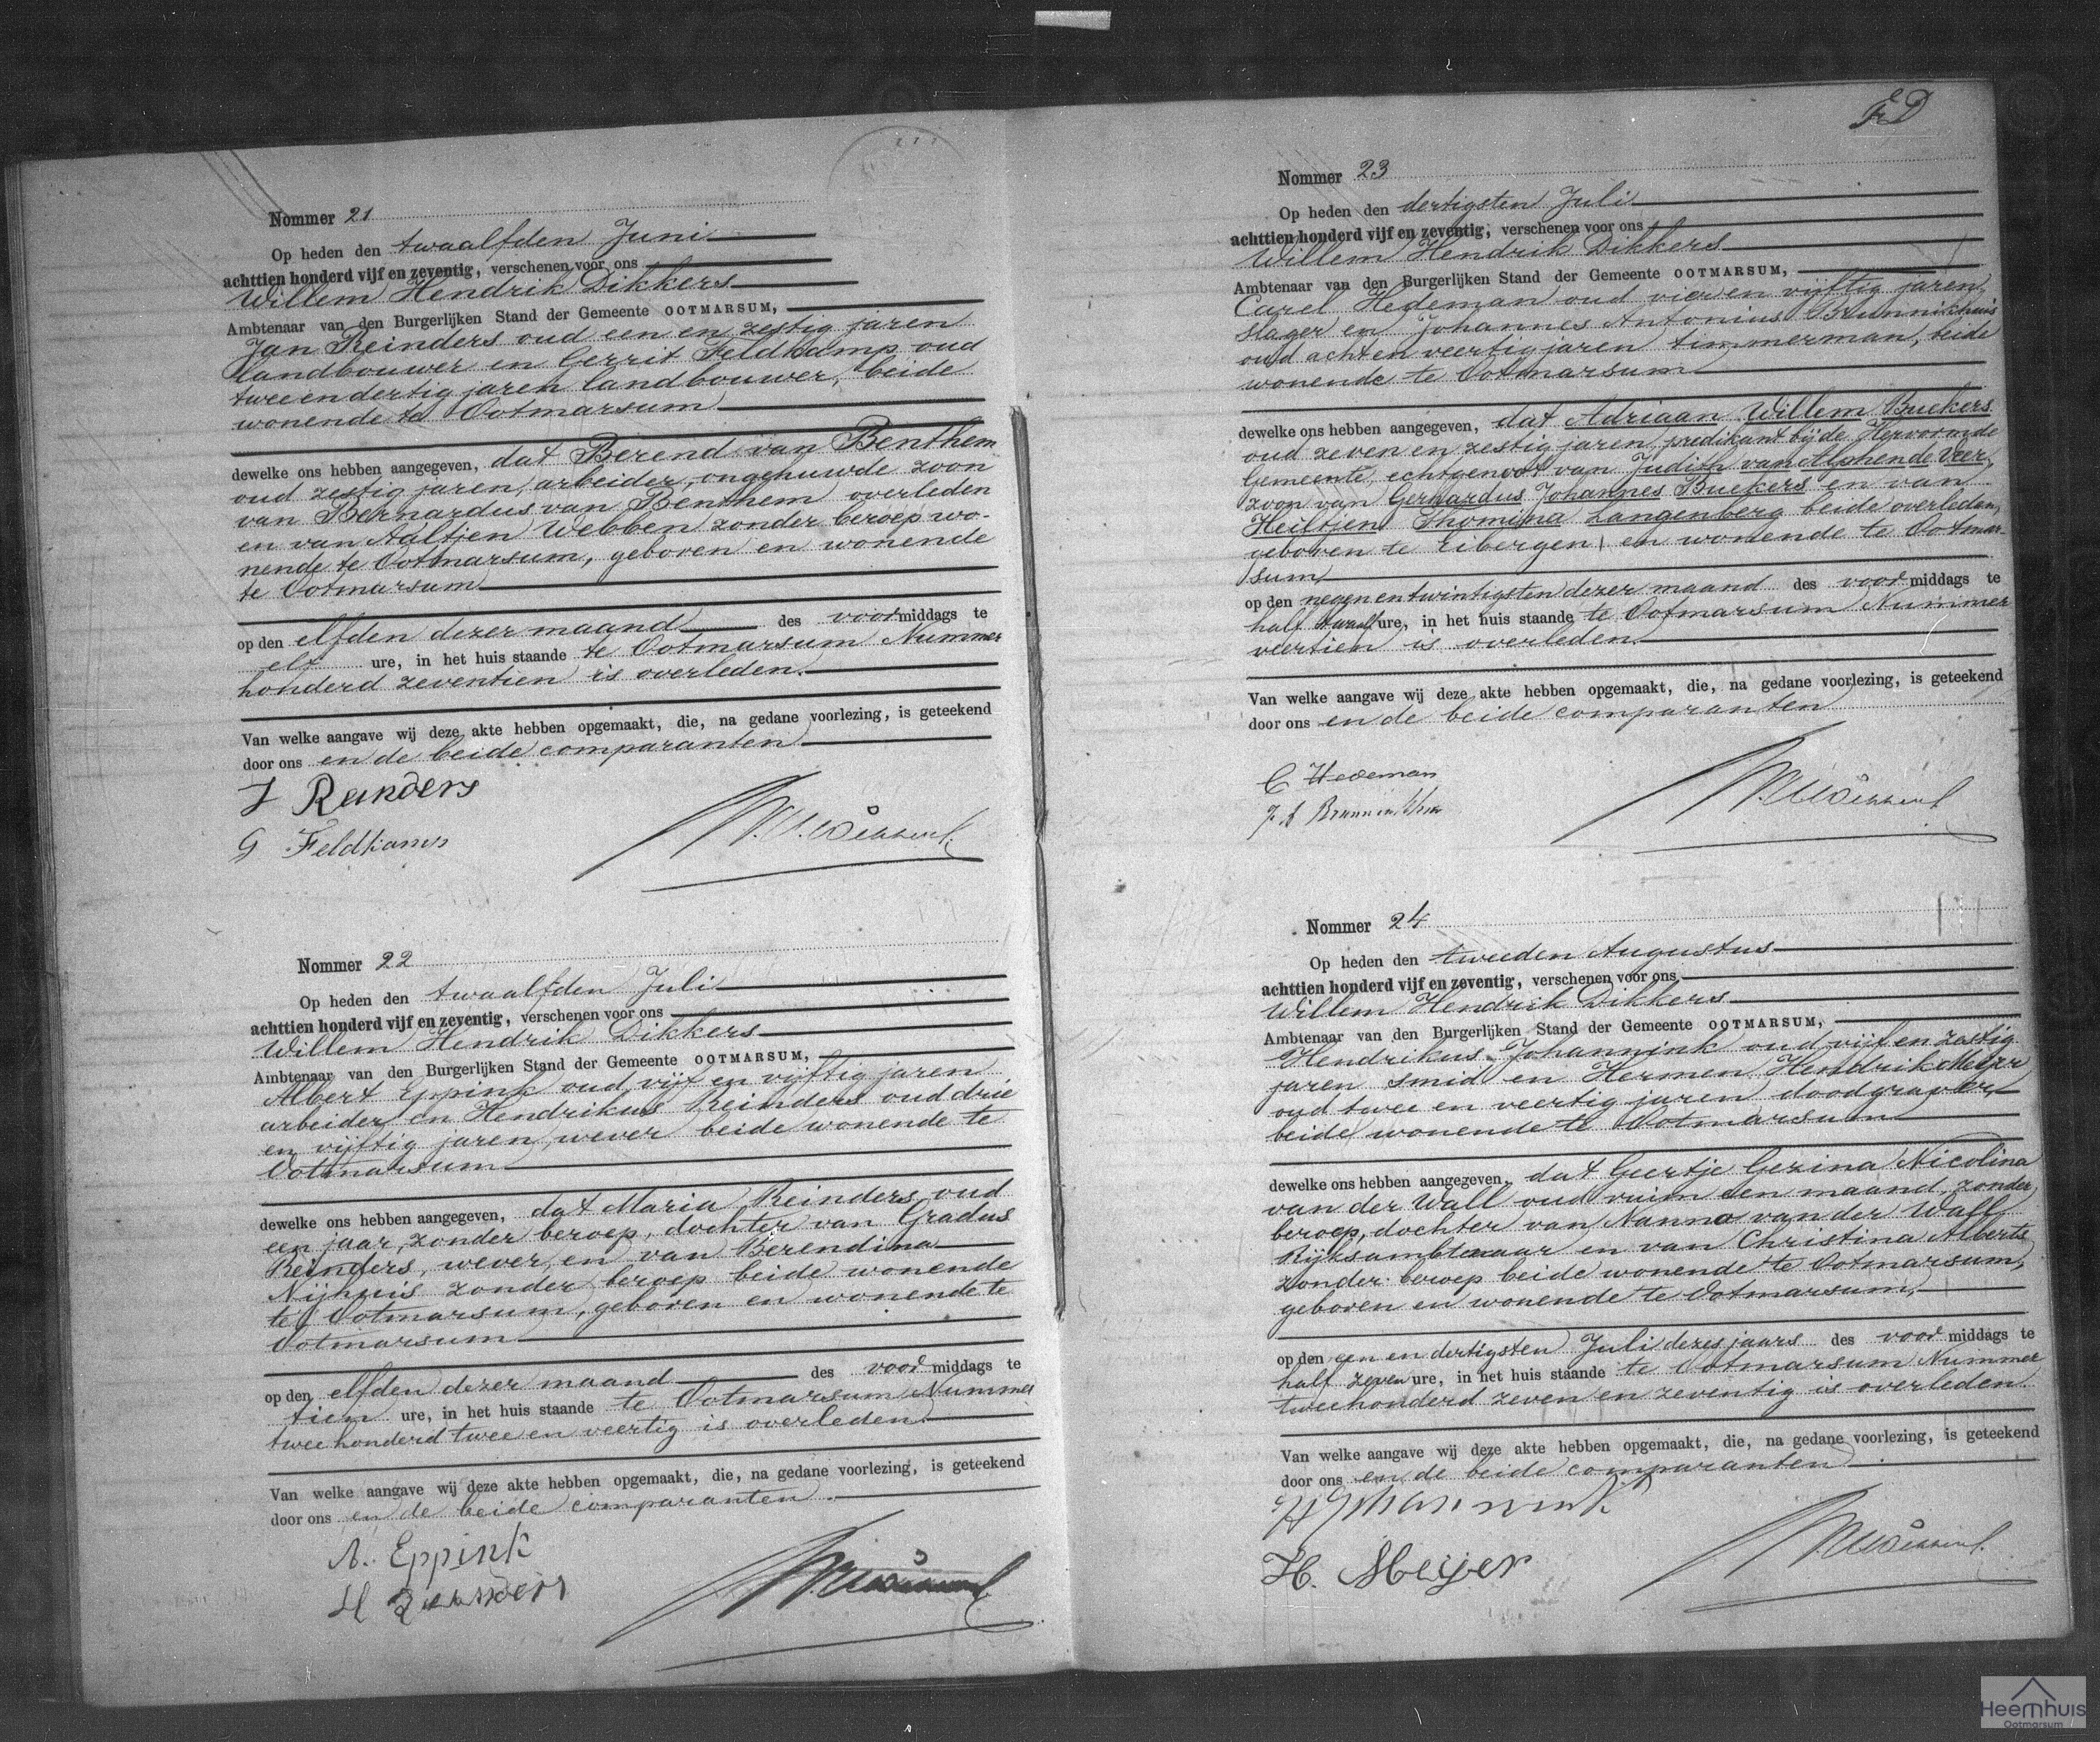 Nommer 21
Op heden den twaalfden Juni
achttien honderd vijf en zeventig, verschenen voor ons
Willem Hendrik Dikkers
Ambtenaar van den Burgerlijken Stand der Gemeente OOTMARSUM,
Jan Reinders oud een en zestig jaren
landbouwer en Gerrit Feldkamp oud
twee en dertig jaren landbouwer, beide
wonende te Ootmarsum
dewelke ons hebben aangegeven, dat Berend van Benthem
oud zestig jaren, arbeider, ongehuwde zoon
van Bernardus van Benthem overleden
en van Aaltjen Webben zonder beroep wo-
nende te Ootmarsum, geboren en wonende
te Ootmarsum
op den elfden dezer maand des voormiddags te
elf ure, in het huis staande te Ootmarsum Nummer
honderd zeventien is overleden.
Van welke aangave wij deze akte hebben opgemaakt, die, na gedane voorlezing, is geteekend
door ons en de beide comparanten
J Reinders
G Feldkamp
Nommer 22
Op heden den twaalfden Juli
achttien honderd vijf en zeventig, verschenen voor ons
Willem Hendrik Dikkers
Ambtenaar van den Burgerlijken Stand der Gemeente OOTMARSUM,
Albert Eppink oud vijf en vijftig jaren
arbeider en Hendrikus Reinders oud drie
en vijftig jaren, wever beide wonende te
Ootmarsum
dewelke ons hebben aangegeven, dat Maria Reinders oud
een jaar, zonder beroep, dochter van Gradus
Reinders, wever, en van Berendina
Nijhuis zonder beroep beide wonende
te Ootmarsum, geboren en wonende te
Ootmarsum
op den elfden dezer maand des voormiddags te
tien ure, in het huis staande te Ootmarsum Nummer
twee honderd twee en veertig is overleden.
Van welke aangave wij deze akte hebben opgemaakt, die, na gedane voorlezing, is geteekend
door ons en de beide comparanten.
A. Eppink
H Reinders
Nommer 23
Op heden den dertigsten Juli
achttien honderd vijf en zeventig, verschenen voor ons
Willem Hendrik Dikkers
Ambtenaar van den Burgerlijken Stand der Gemeente OOTMARSUM,
Carel Hedeman oud vier en vijftig jaren,
slager en Johannes Antonius Brunnikhuis
oud acht en veertig jaren timmerman, beide
wonende te Ootmarsum
dewelke ons hebben aangegeven, dat Adriaan Willem Buekers
oud zeven en zestig jaren, predikant bij de Hervormde
Gemeente, echtgenoot van Judith van Alphen de Veer,
zoon van Gerhardus Johannes Buekers en van
Heiltjen Thomina Langenberg beide overleden,
geboren te Eibergen en wonende te Ootmar-
sum
op den negen en twintigsten dezer maand des voormiddags te
half twaalf ure, in het huis staande te Ootmarsum Nummer
veertien is overleden.
Van welke aangave wij deze akte hebben opgemaakt, die, na gedane voorlezing, is geteekend
door ons en de beide comparanten
C Hedeman
Nommer 24
Op heden den tweeden Augustus
achttien honderd vijf en zeventig, verschenen voor ons
Willem Hendrik Dikkers
Ambtenaar van den Burgerlijken Stand der Gemeente OOTMARSUM,
Hendrikus Johannink oud vijf en zestig
jaren smid en Hermen Hendrik Meijer
oud twee en veertig jaren doodgraver,
beide wonende te Ootmarsum
dewelke ons hebben aangegeven, dat Geertje Gezina Nicolina
van der Wall oud ruim een maand, zonder
beroep, dochter van Nanno van der Wall
Rijksambtenaar en van Christina Alberts
zonder beroep beide wonende te Ootmarsum,
geboren en wonende te Ootmarsum,
op den een en dertigsten Juli dezes jaars des voormiddags te
half zeven ure, in het huis staande te Ootmarsum Nummer
tweehonderd zeven en zeventig is overleden.
Van welke aangave wij deze akte hebben opgemaakt, die, na gedane voorlezing, is geteekend
door ons en de beide comparanten
H Johannink
H. Meijer
Heemhuis
Ootmarsum